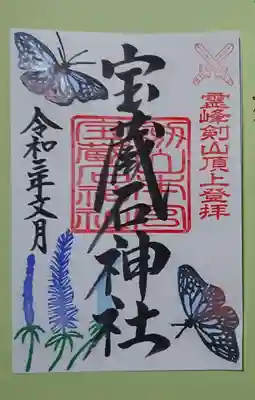 霊峰剣山頂上登拝
宝蔵石神社
令和三年文月